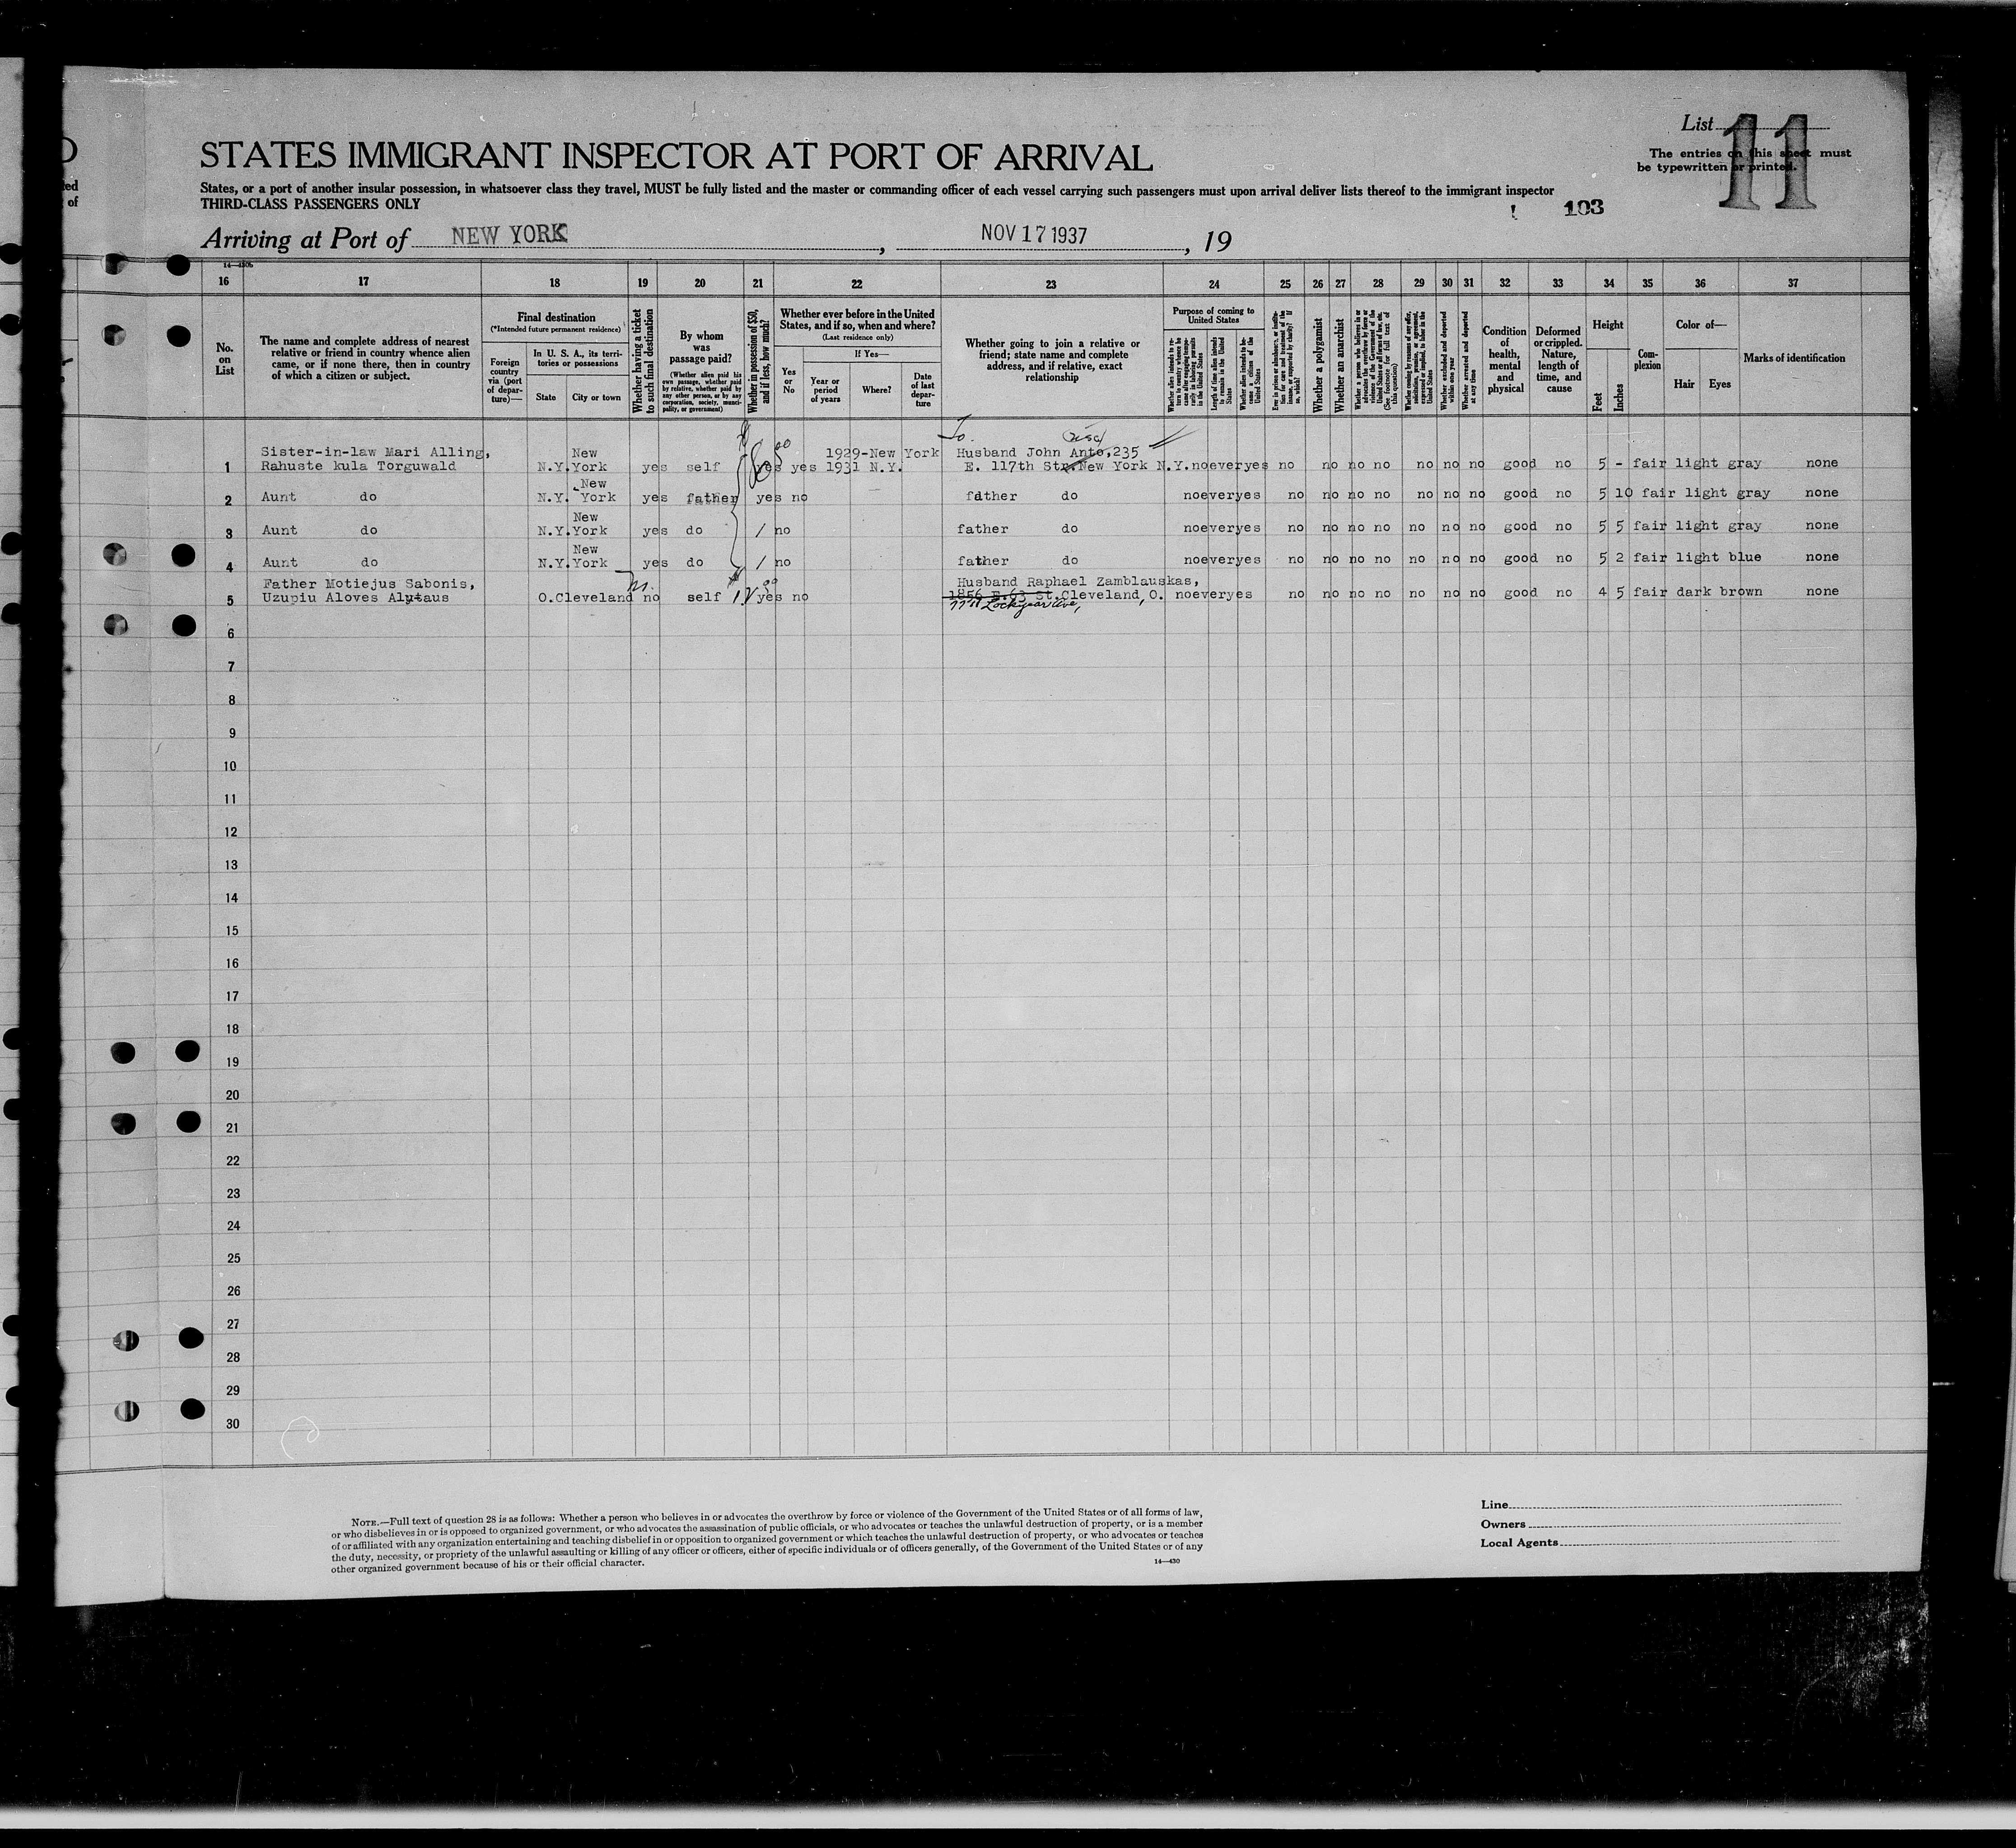 List 11
The entries on this sheet must
be typewritten or printed.
STATES IMMIGRANT INSPECTOR AT PORT OF ARRIVAL
States, or a port of another insular possession, in whatsoever class they travel, MUST be fully listed and the master or commanding officer of each vessel carrying such passengers must upon arrival deliver lists thereof to the immigrant inspector
THIRD-CLASS PASSENGERS ONLY
103
Arriving at Port of NEW YORK, NOV 17 1937, 19
16 17 18 19 20 21 22 23 24 25 26 27 28 29 30 31 32 33 34 35 36 37
No. on List
The name and complete address of nearest relative or friend in country whence alien came, or if none there, then in country of which a citizen or subject.
Final destination
(*Intended future permanent residence)
Foreign country via (port of departure)—
In U. S. A., its territories or possessions
State
City or town
Whether having a ticket to such final destination
By whom was passage paid?
(Whether alien paid his own passage, whether paid by relative, whether paid by any other person, or by any corporation, society, municipality, or government)
Whether in possession of $50, and if less, how much?
Whether ever before in the United States, and if so, when and where?
(Last residence only)
Yes or No
If Yes—
Year or period of years
Where?
Date of last departure
Whether going to join a relative or friend; state name and complete address, and if relative, exact relationship
Purpose of coming to United States
Length of time alien intends to remain in the United States
Whether alien intends to become a citizen of the United States
Whether a polygamist
Whether an anarchist
Whether excluded and deported within one year
Whether arrested and deported at any time
Condition of health, mental and physical
Deformed or crippled. Nature, length of time, and cause
Height
Feet
Inches
Complexion
Color of—
Hair Eyes
Marks of identification
Sister-in-law Mari Alling, New 1929-New York Husband John Anto,235
1 Rahuste kula Torguwald N.Y. York yes self yes yes 1931 N.Y. E. 117th Str New York N.Y. no ever yes no no no no no no no good no 5 - fair light gray none
New
2 Aunt do N.Y. York yes father yes no father do no ever yes no no no no no no no good no 5 10 fair light gray none
New
3 Aunt do N.Y. York yes do / no father do no ever yes no no no no no no no good no 5 5 fair light gray none
New
4 Aunt do N.Y. York yes do / no father do no ever yes no no no no no no no good no 5 2 fair light blue none
Father Motiejus Sabonis, Husband Raphael Zamblauskas,
5 Uzupiu Aloves Alytaus O. Cleveland no self yes no 1856 E.63 St. Cleveland, O. no ever yes no no no no no no no good no 4 5 fair dark brown none
Lockyear Ave,
6
7
8
9
10
11
12
13
14
15
16
17
18
19
20
21
22
23
24
25
26
27
28
29
30
NOTE.—Full text of question 28 is as follows: Whether a person who believes in or advocates the overthrow by force or violence of the Government of the United States or of all forms of law,
or who disbelieves in or is opposed to organized government, or who advocates the assassination of public officials, or who advocates or teaches the unlawful destruction of property, or is a member
of or affiliated with any organization entertaining and teaching disbelief in or opposition to organized government or which teaches the unlawful destruction of property, or who advocates or teaches
the duty, necessity, or propriety of the unlawful assaulting or killing of any officer or officers, either of specific individuals or of officers generally, of the Government of the United States or of any
other organized government because of his or their official character.
14—430
Line
Owners
Local Agents